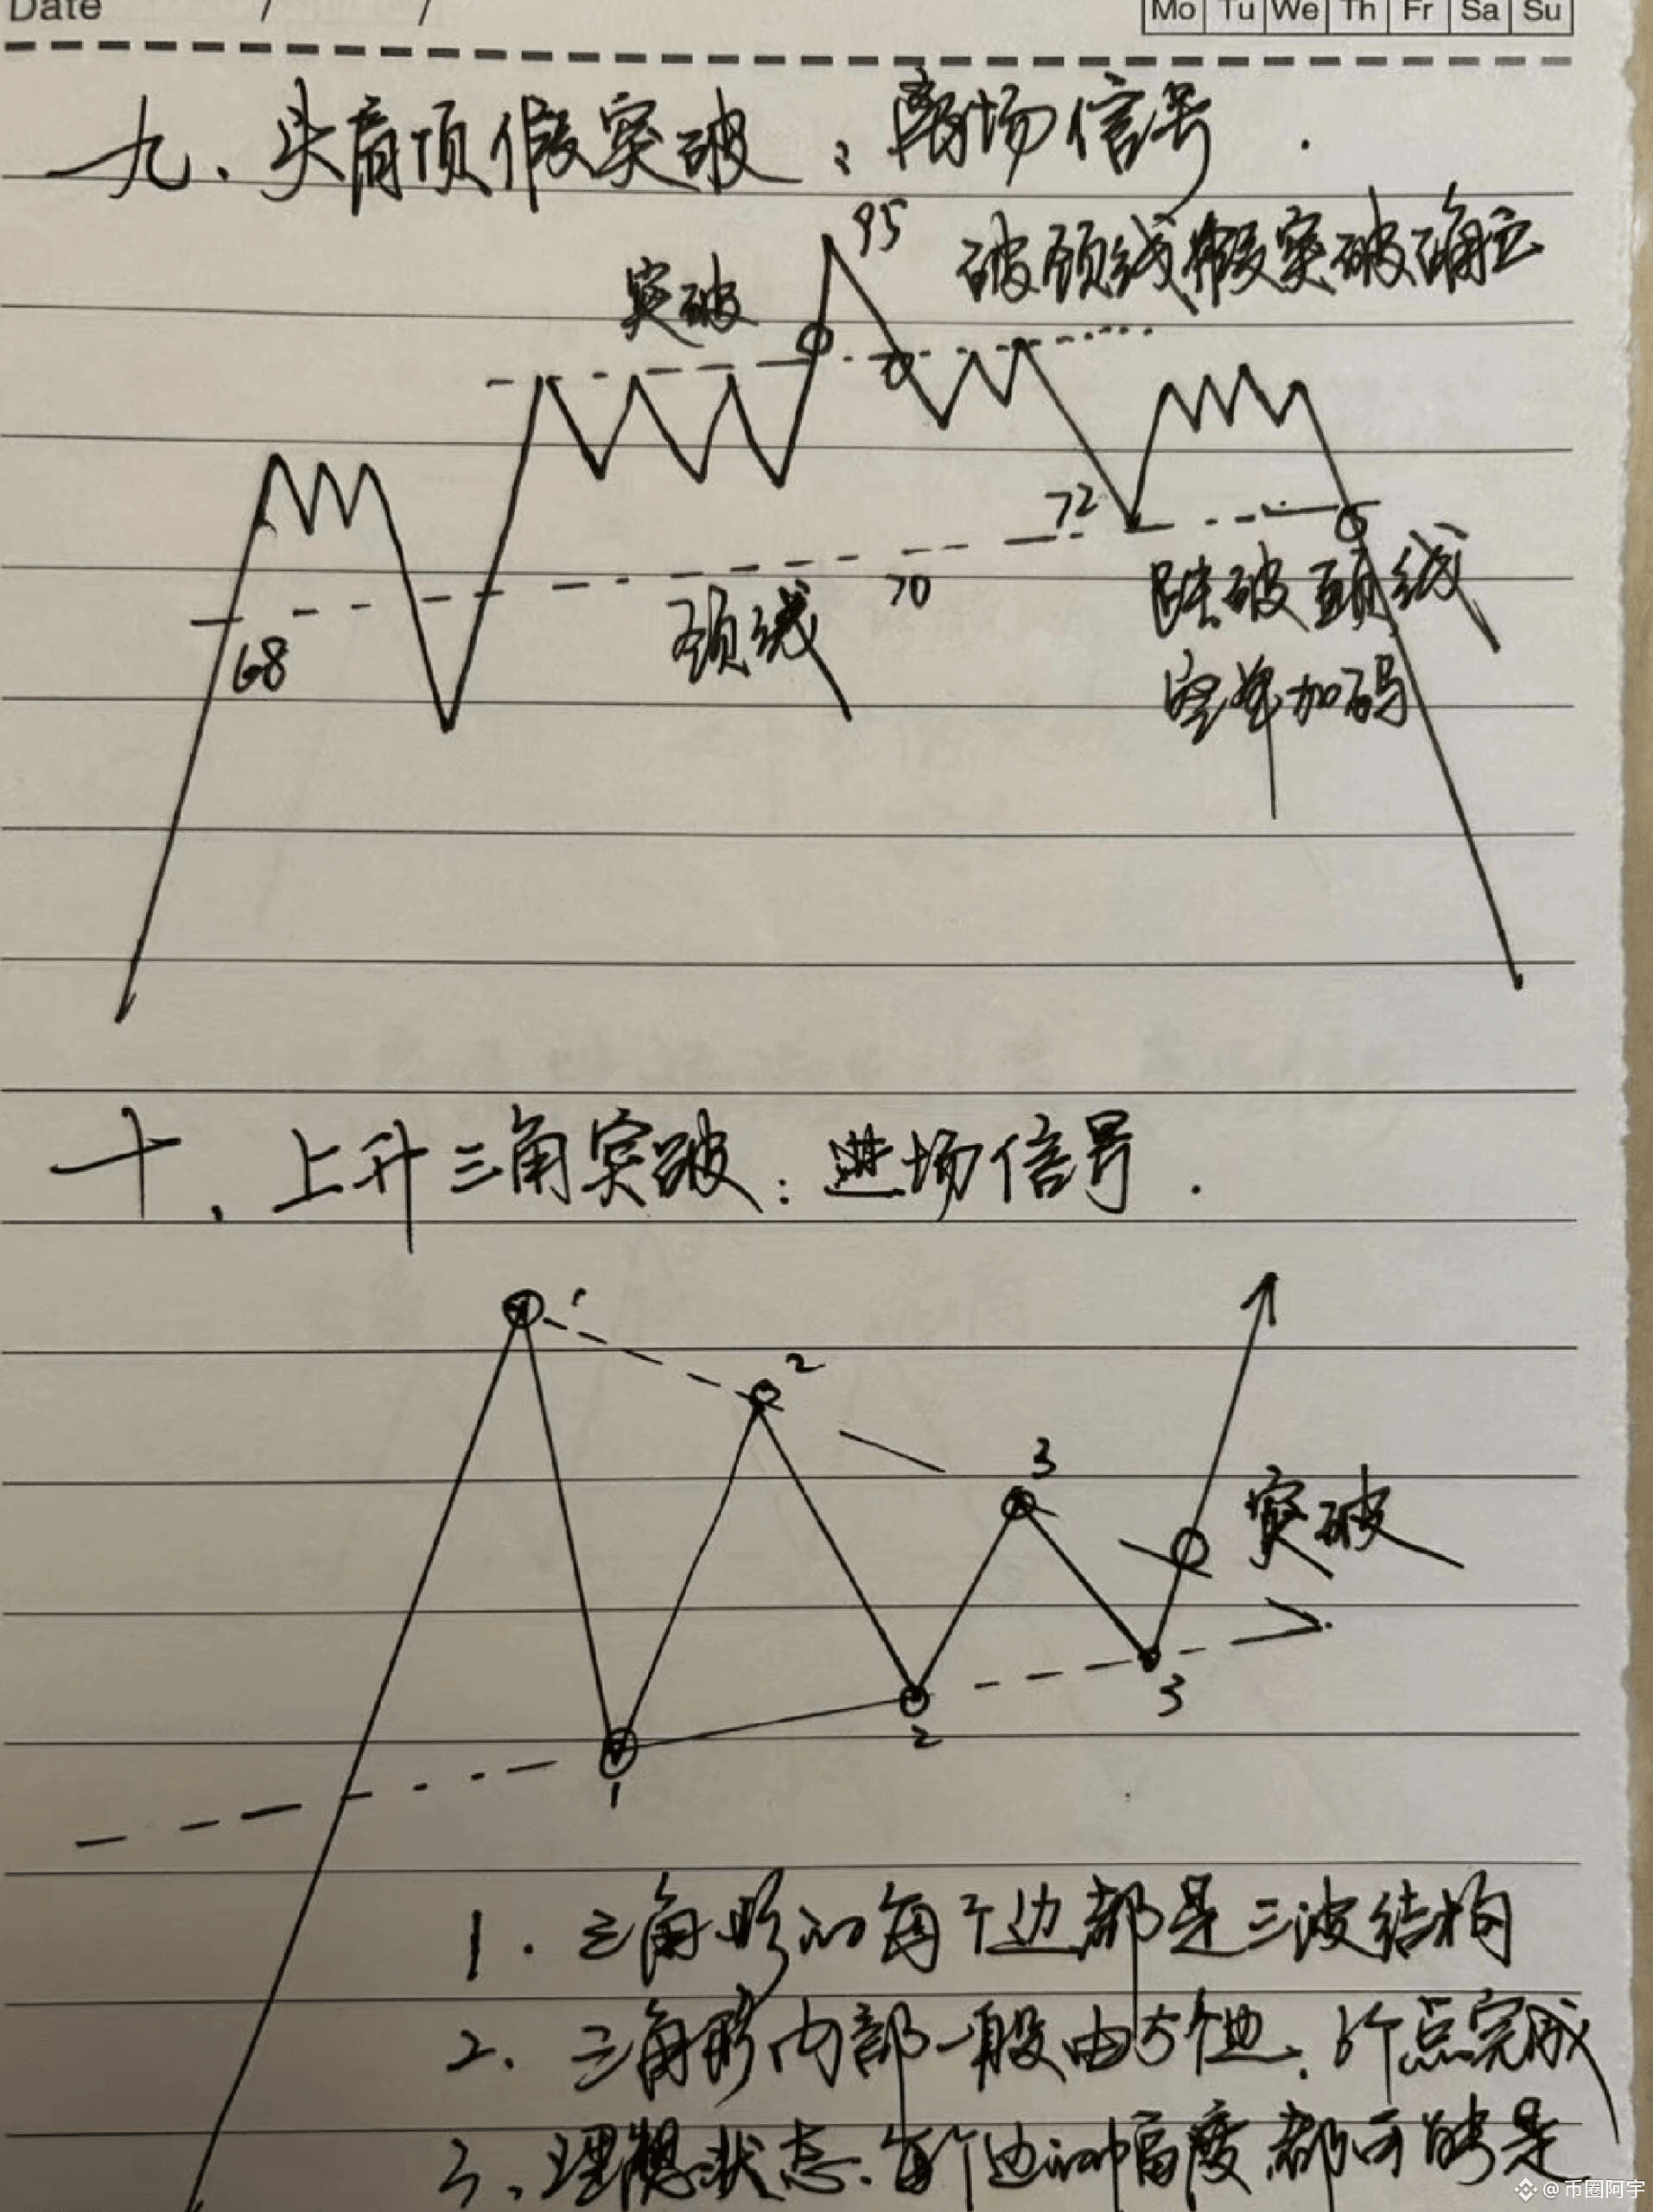 Date / /
Mo Tu We Th Fr Sa Su
九、头肩顶假突破:离场信号.
95
突破
破颈线假突破确立
72
70
颈线
68
跌破颈线
空单加码
十、上升三角突破:进场信号.
1
2
3
突破
3
2
1
1. 三角形的每个边都是三波结构
2、三角形内部一般由5个边、6个点完成
3、理想状态、每个边的幅度都可能是
@币圈阿宇